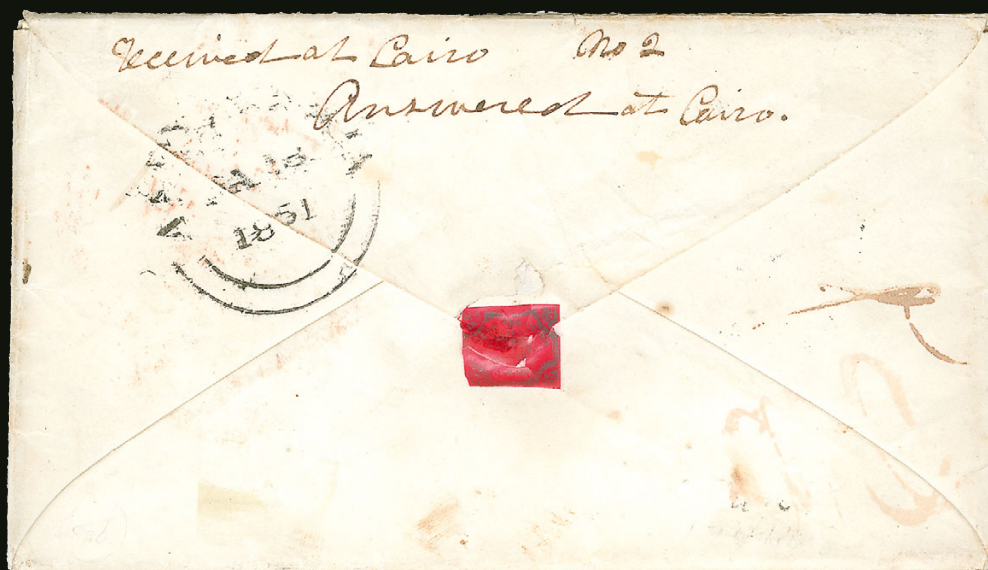 Received at Cairo No 2
Answered at Cairo.
JA 18
1851